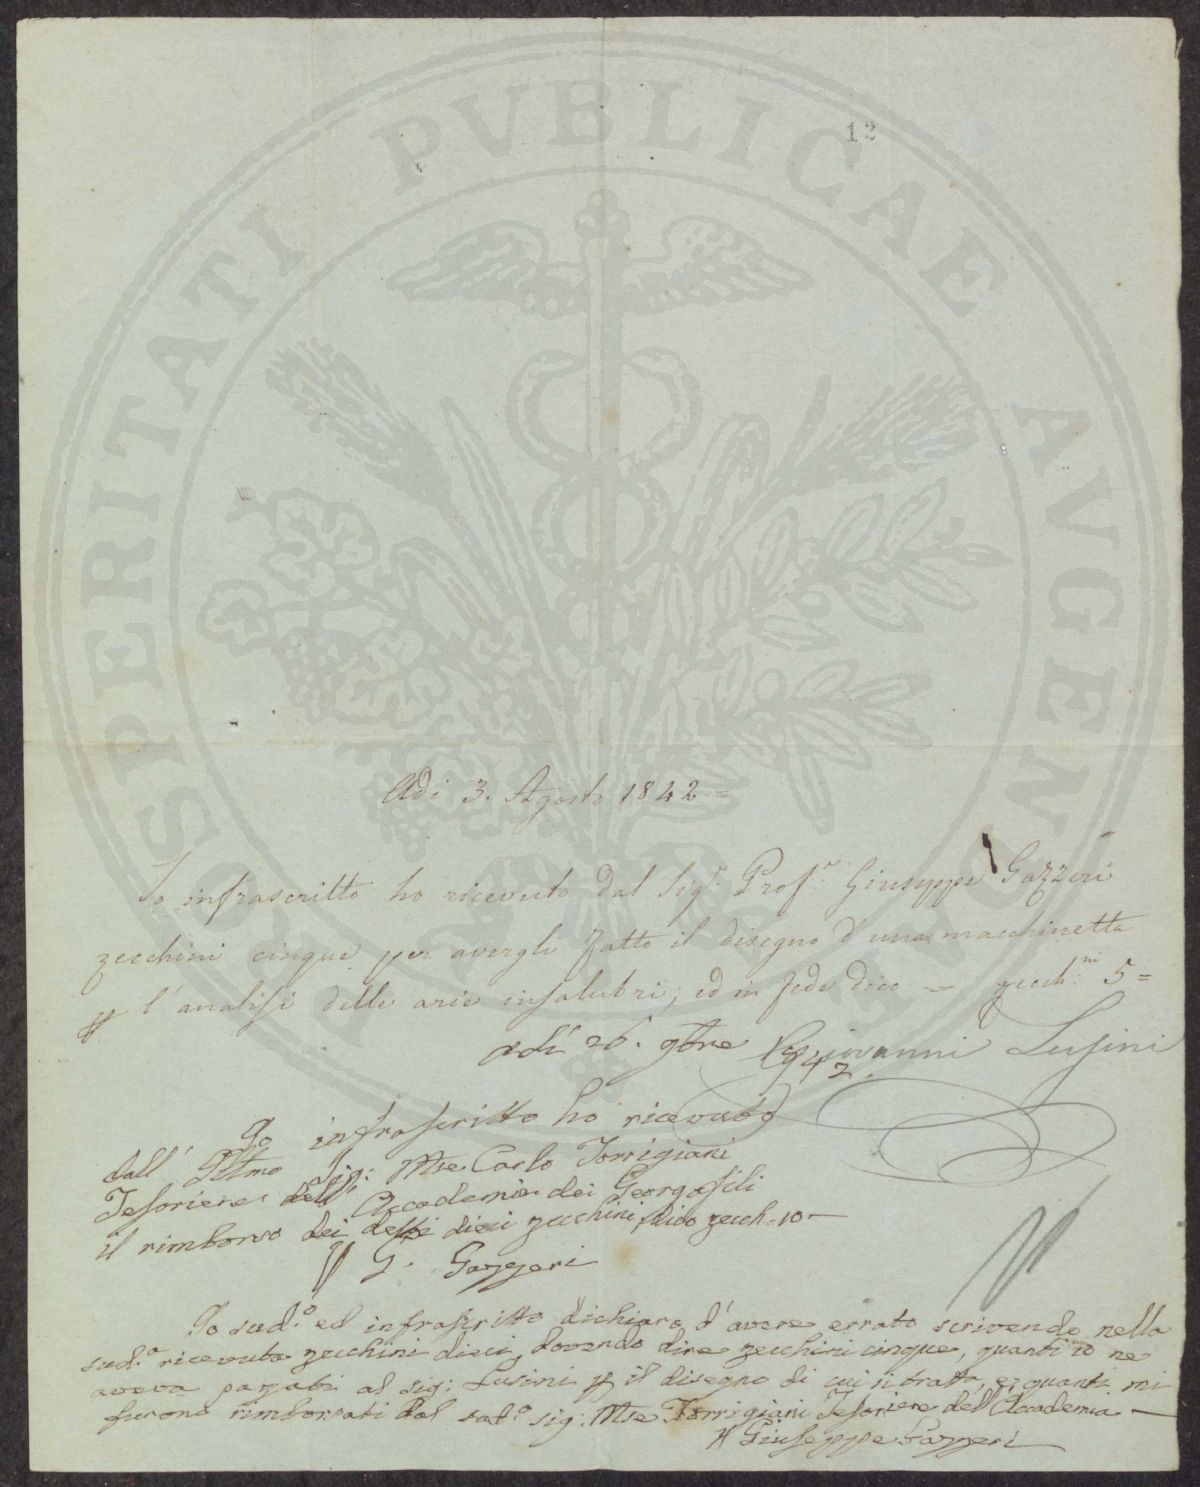 PROSPERITATI PVBLICAE AVGENDAE
12
Adi 3. Agosto 1842 =
Io infrascritto ho ricevuto dal Sig.r Prof.r Giuseppe Gazzeri
zecchini cinque per avergli fatto il disegno d'una macchinetta
p l'analisi delle arie insalubri; ed in fede dico = zecch.ni 5 =
Giovanni Lusini
adi 26. 9bre 1842.
Io infrascritto ho ricevuto
dall' Illmo Sig: Mse Carlo Torrigiani
Tesoriere dell' Accademia dei Georgofili
il rimborso dei detti dieci zecchini, dico zecch. 10 —
G. Gazzeri
Io sud.o ed infrascritto dichiaro d'avere errato scrivendo nella
sud.a ricevuta zecchini dieci, dovendo dire zecchini cinque, quanti io ne
aveva pagati al sig: Lusini p il disegno di cui si tratta, e quanti mi
furono rimborsati dal sud.o sig: Mse Torrigiani Tesoriere dell'Accademia —
Giuseppe Gazzeri